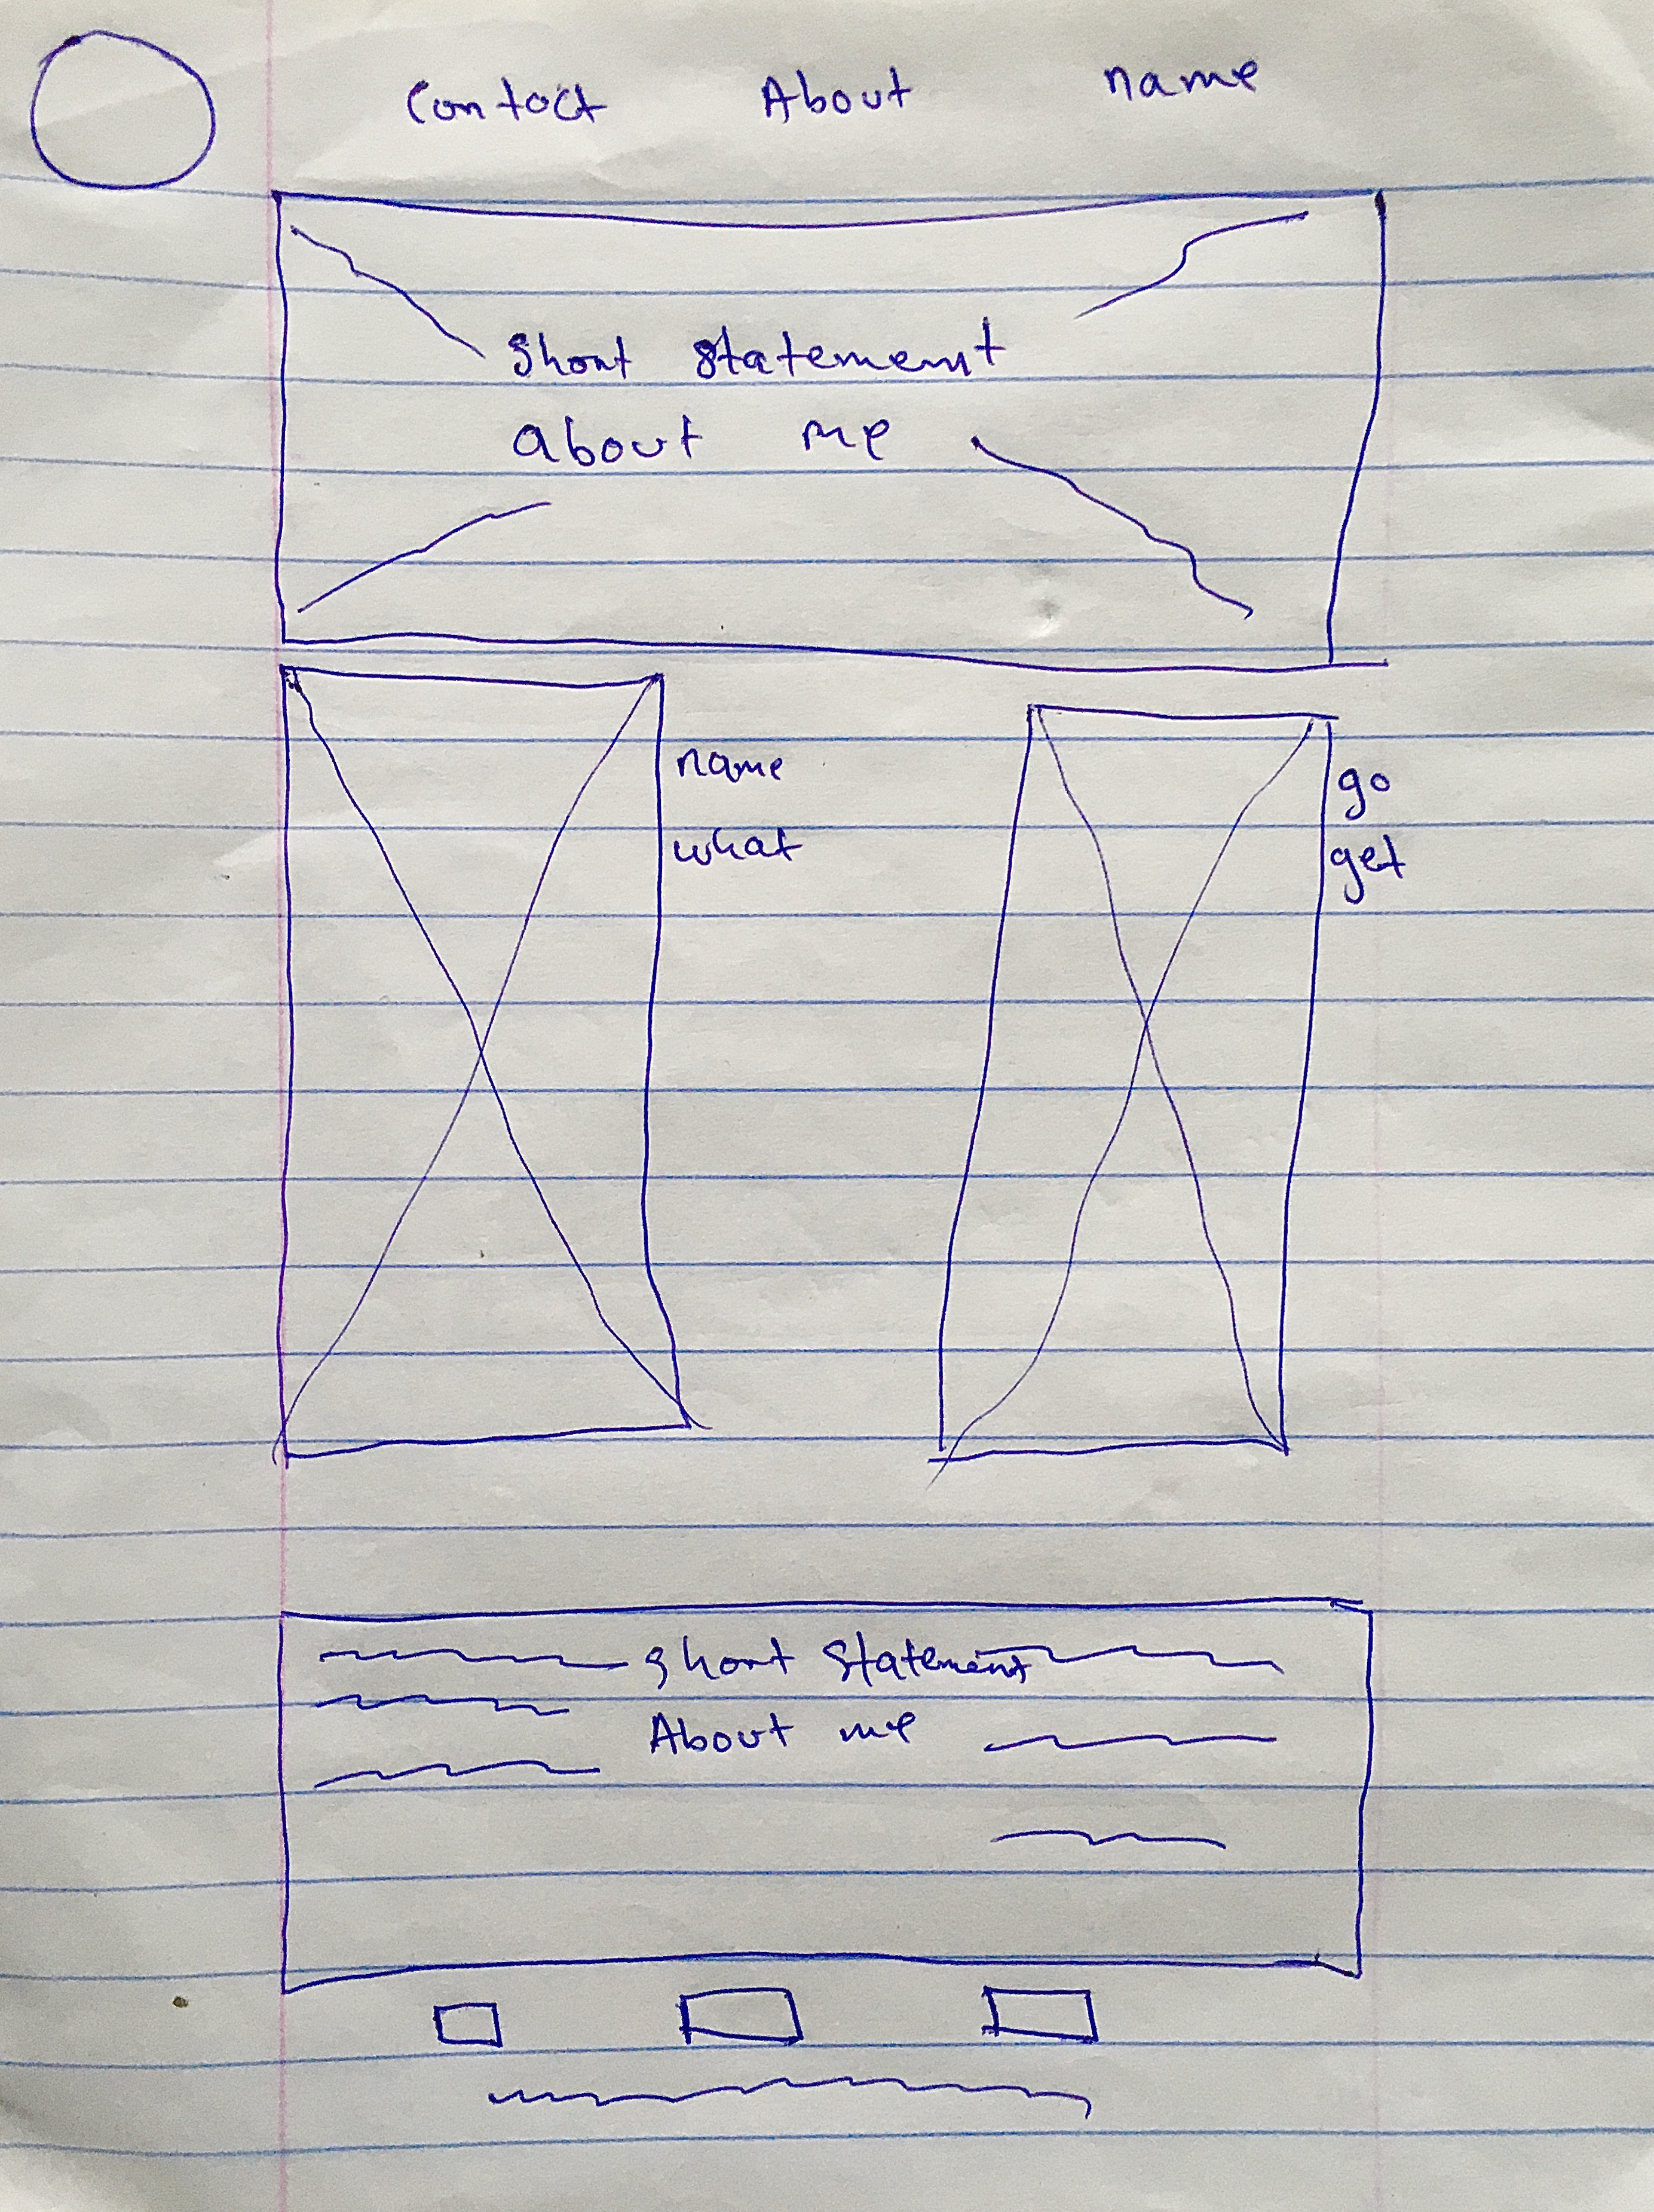 Contact About name
Short statement
about me
name
what
go
get
Short statement
About me